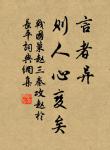 言者异
则人心变矣
战国策赵三秦攻赵于
长平词典网集